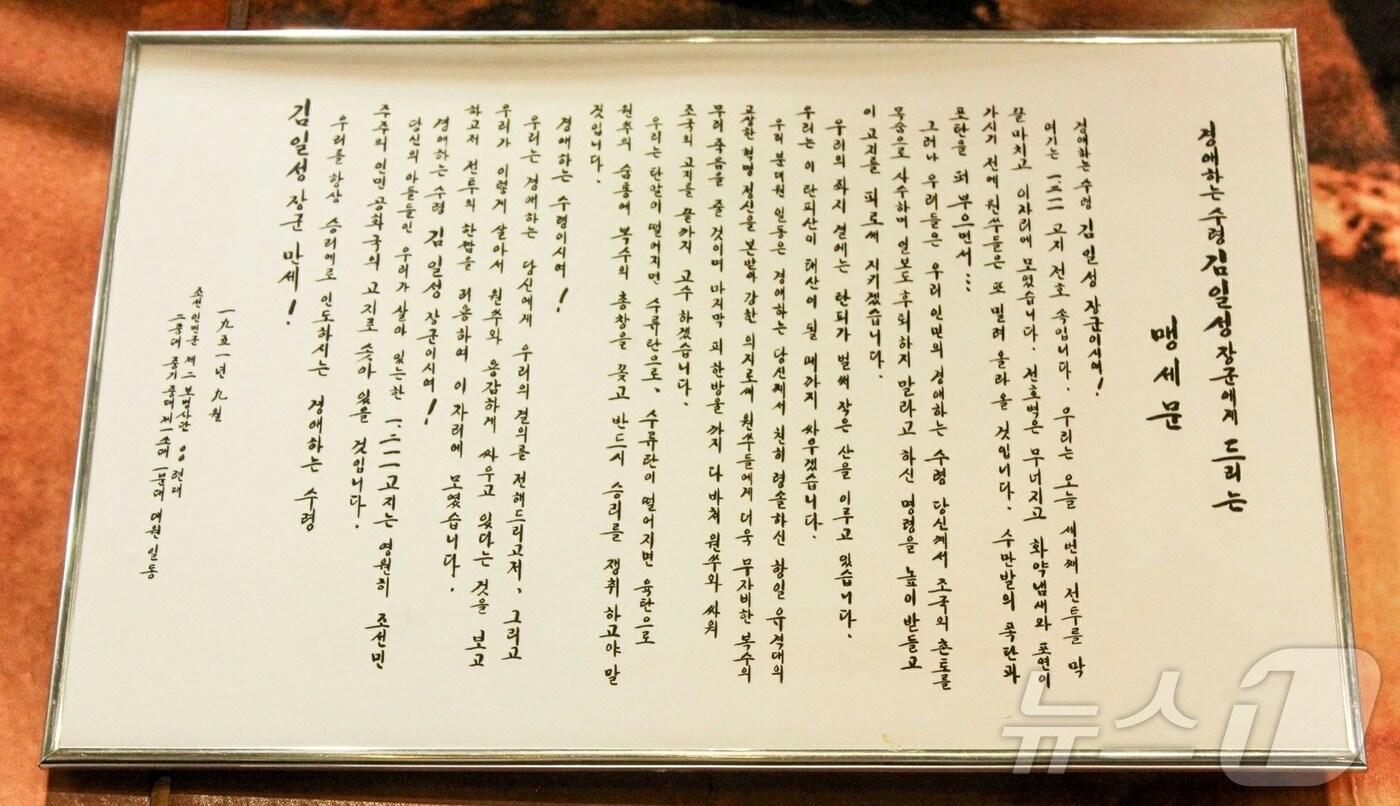 경애하는 수령 김일성 장군에게 드리는
맹세문
경애하는 수령 김일성 장군이시여!
여기는 1.211 고지 전호 속입니다. 우리는 오늘 세번째 전투를 막
끝마치고 이자리에 모였습니다. 전호벽은 무너지고 화약냄새와 포연이
가시기 전에 원쑤들은 또 밀려 올라 올 것입니다. 수만발의 폭탄과
포탄을 퍼 부으면서...
그러나 우리들은 우리 인민의 경애하는 수령 당신께서 조국의 촌토를
목숨으로 사수하며 일보도 후퇴하지 말라고 하신 명령을 높이 받들고
이 고지를 피로써 지키겠습니다.
우리의 좌지 곁에는 탄피가 벌써 작은 산을 이루고 있습니다.
우리는 이 탄피산이 태산이 될 때까지 싸우겠습니다.
우리 분대원 일동은 경애하는 당신께서 친히 령솔하신 항일 유격대의
고상한 혁명 정신을 본받아 강한 의지로써 원쑤들에게 더욱 무자비한 복수의
무리 죽음을 줄 것이며 마지막 피 한방울 까지 다 바쳐 원쑤와 싸워
조국의 고지를 끝까지 고수 하겠습니다.
우리는 탄알이 떨어지면 수류탄으로, 수류탄이 떨어지면 육탄으로
원쑤의 숨통에 복수의 총창을 꽂고 반드시 승리를 쟁취 하고야 말
것입니다.
경애하는 수령이시여!
우리는 경애하는 당신에게 우리의 결의를 전해드리고저, 그리고
우리가 이렇게 살아서 원쑤와 용감하게 싸우고 있다는 것을 보고
하고저 전투의 한짬을 리용하여 이 자리에 모였습니다.
경애하는 수령 김일성 장군이시여!
당신의 아들들인 우리가 살아 있는한 1.211고지는 영원히 조선민
주주의 인민 공화국의 고지로 솟아 있을 것입니다.
우리를 항상 승리에로 인도하시는 경애하는 수령
김일성 장군 만세!
一九五一年 九월
조선인민군 제二보병사단 련대
二중대 중기중대 제一소대 一분대 대원일동
뉴스1